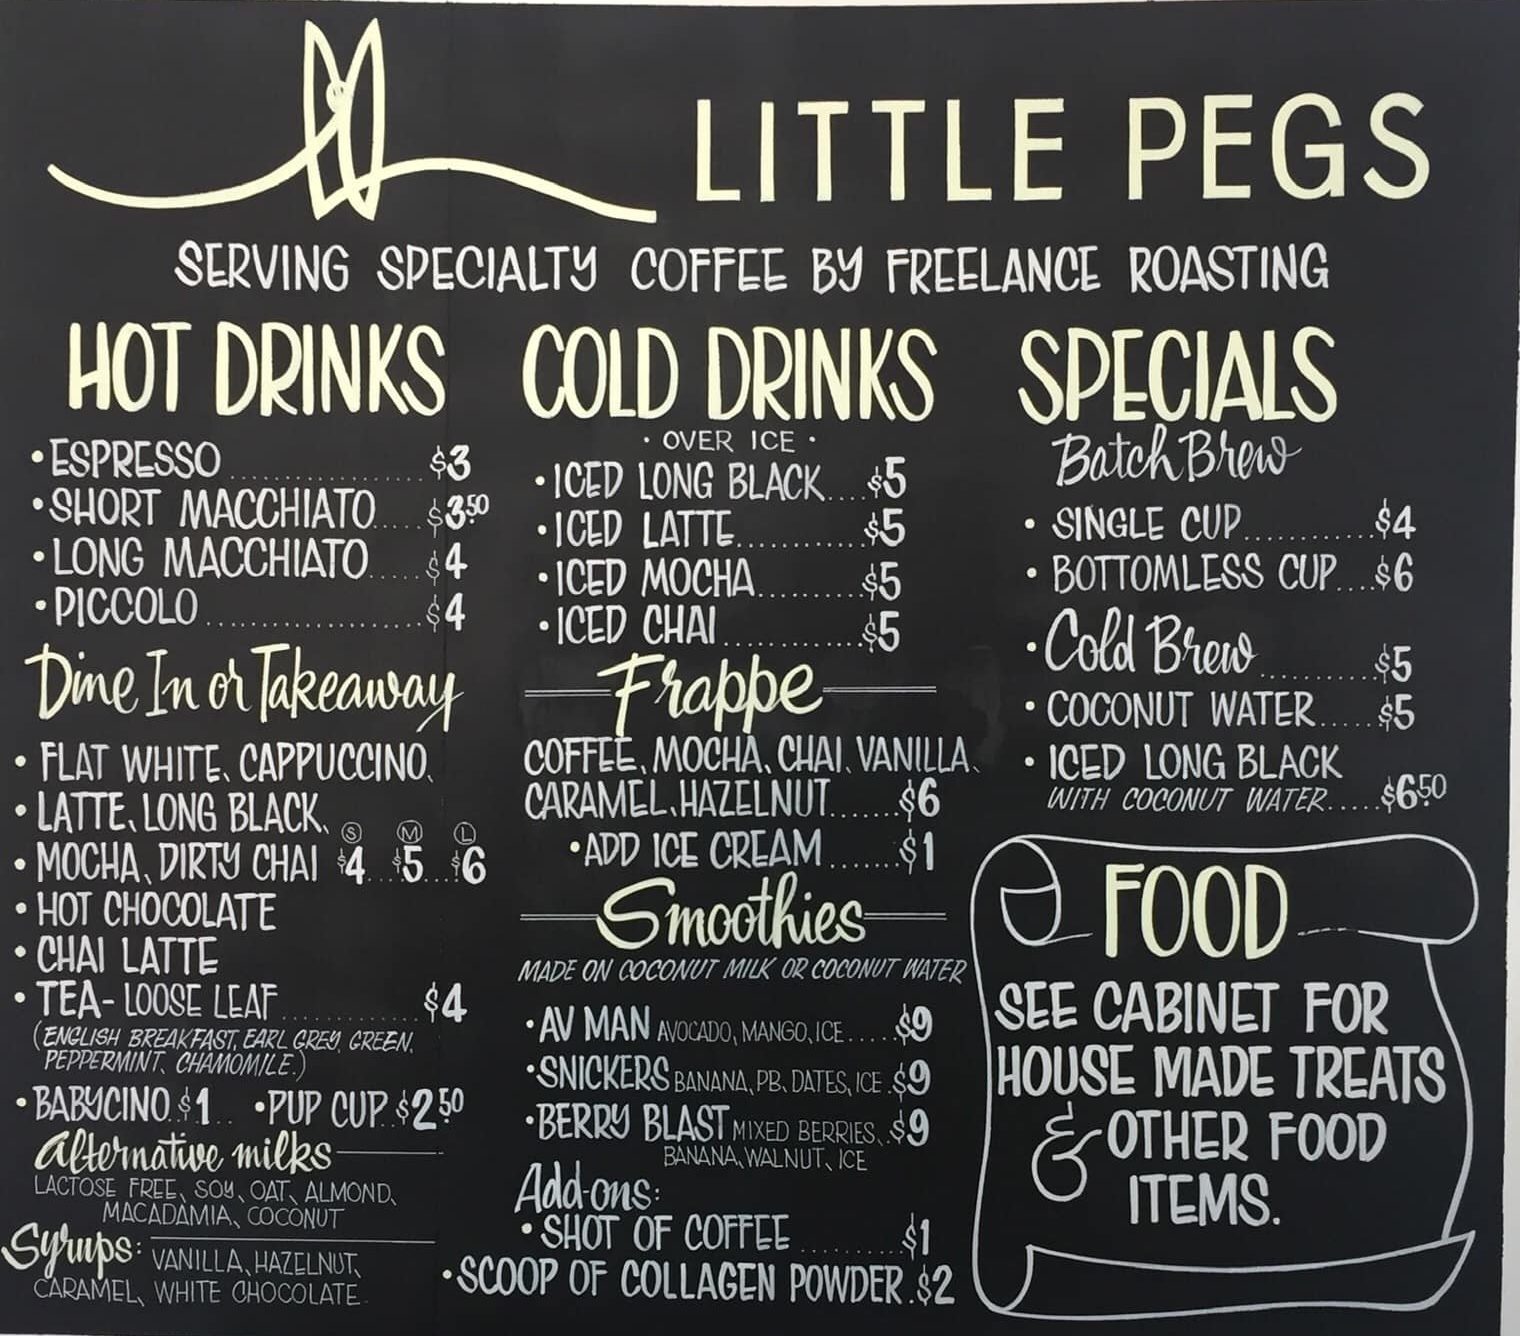 LITTLE PEGS
SERVING SPECIALTY COFFEE BY FREELANCE ROASTING
HOT DRINKS
• ESPRESSO .................. $3
• SHORT MACCHIATO ..... $3.50
• LONG MACCHIATO ..... $4
• PICCOLO .................... $4
Dine In or Takeaway
• FLAT WHITE, CAPPUCCINO,
• LATTE, LONG BLACK, S M L
• MOCHA, DIRTY CHAI $4 ... $5 ... $6
• HOT CHOCOLATE
• CHAI LATTE
• TEA- LOOSE LEAF ............ $4
(ENGLISH BREAKFAST, EARL GREY, GREEN,
PEPPERMINT, CHAMOMILE.)
• BABYCINO. $1 .. • PUP CUP.. $2.50
Alternative milks
LACTOSE FREE, SOY, OAT, ALMOND,
MACADAMIA, COCONUT
Syrups: VANILLA, HAZELNUT,
CARAMEL, WHITE CHOCOLATE.
COLD DRINKS
• OVER ICE •
• ICED LONG BLACK .... $5
• ICED LATTE ............ $5
• ICED MOCHA .......... $5
• ICED CHAI ............. $5
Frappe
COFFEE, MOCHA, CHAI, VANILLA,
CARAMEL, HAZELNUT ....... $6
• ADD ICE CREAM ....... $1
Smoothies
MADE ON COCONUT MILK OR COCONUT WATER
• AV MAN AVOCADO, MANGO, ICE ...... $9
• SNICKERS BANANA, PB, DATES, ICE . $9
• BERRY BLAST MIXED BERRIES, . $9
BANANA, WALNUT, ICE
Add-ons:
• SHOT OF COFFEE .......... $1
• SCOOP OF COLLAGEN POWDER . $2
SPECIALS
Batch Brew
• SINGLE CUP ............ $4
• BOTTOMLESS CUP .... $6
• Cold Brew ............ $5
• COCONUT WATER ..... $5
• ICED LONG BLACK
WITH COCONUT WATER ..... $6.50
FOOD
SEE CABINET FOR
HOUSE MADE TREATS
& OTHER FOOD
ITEMS.